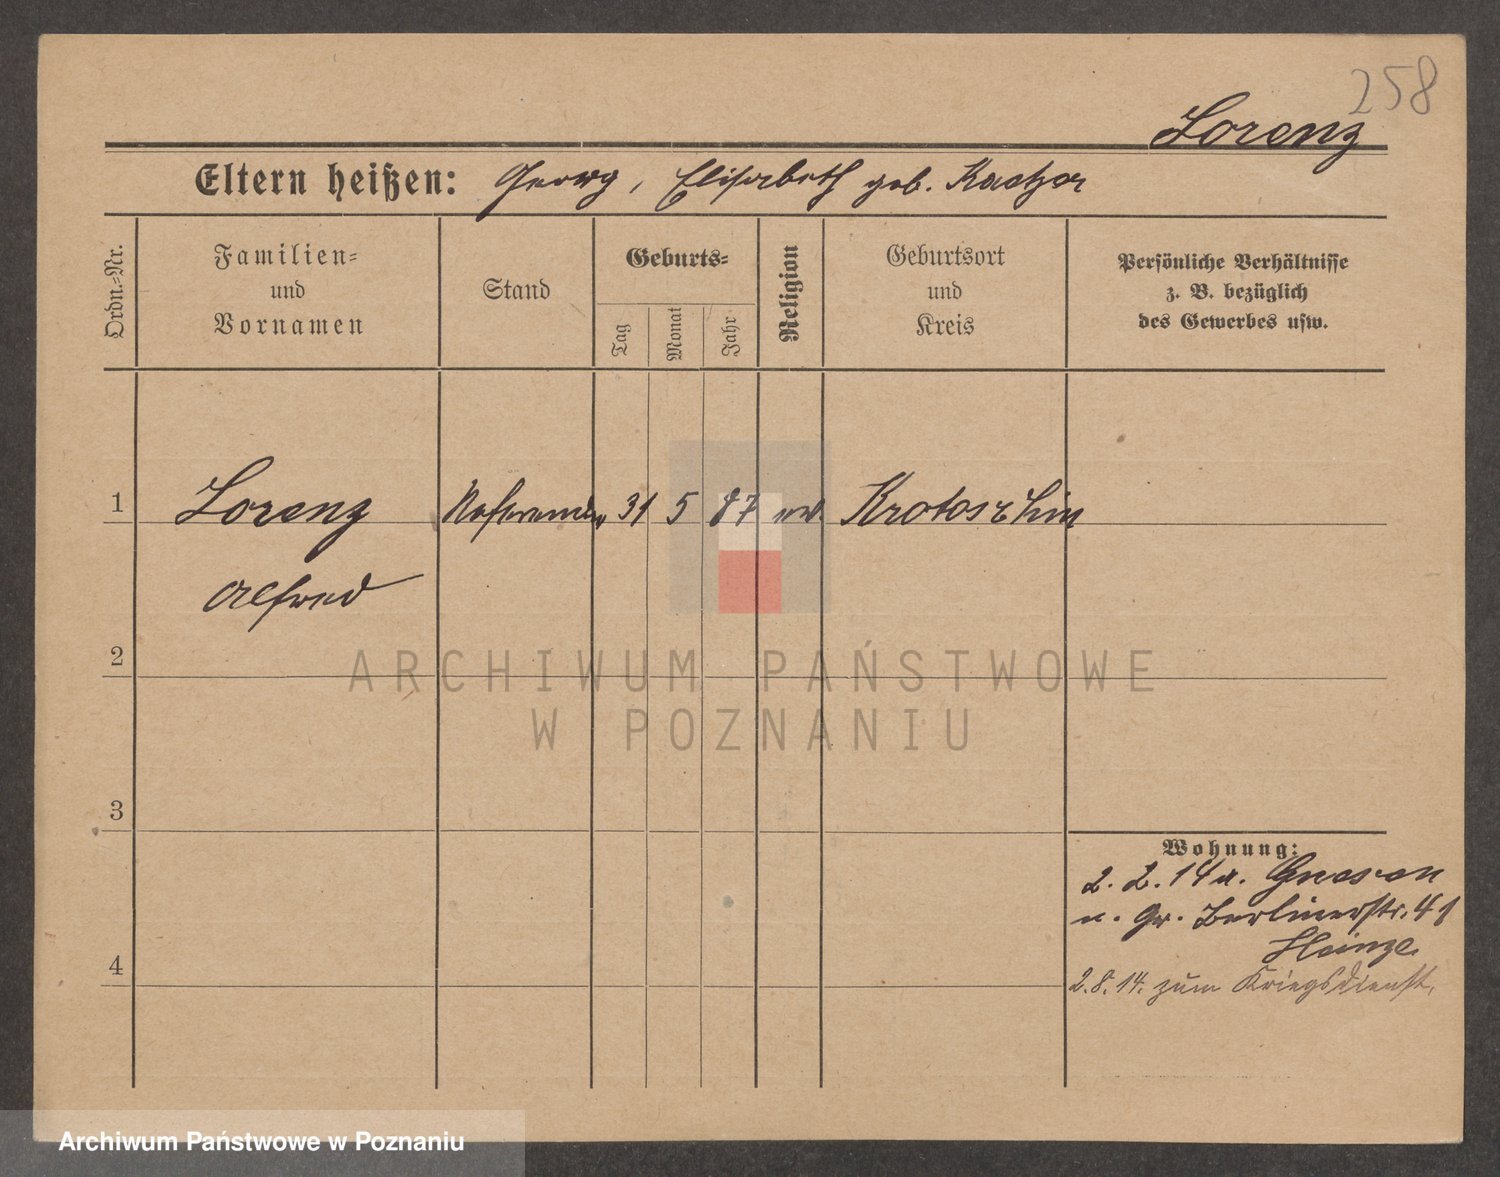 258
Lorenz
Eltern heißen: Georg, Elisabeth geb.
Ordn.-Nr.
Familien- und Vornamen
Stand
Geburts-
Tag
Monat
Jahr
Religion
Geburtsort und Kreis
Persönliche Verhältnisse z. B. bezüglich des Gewerbes usw.
1 Lorenz Referendar 31 5 87 ev. Krotoschin
Alfred
2
3
4
Wohnung:
2. 2. 14 v. Gnesen
n. Gr. Berlinerstr. 41
Heinze
2.8.14. zum Kriegsdienst.
ARCHIWUM PAŃSTWOWE
W POZNANIU
Archiwum Państwowe w Poznaniu